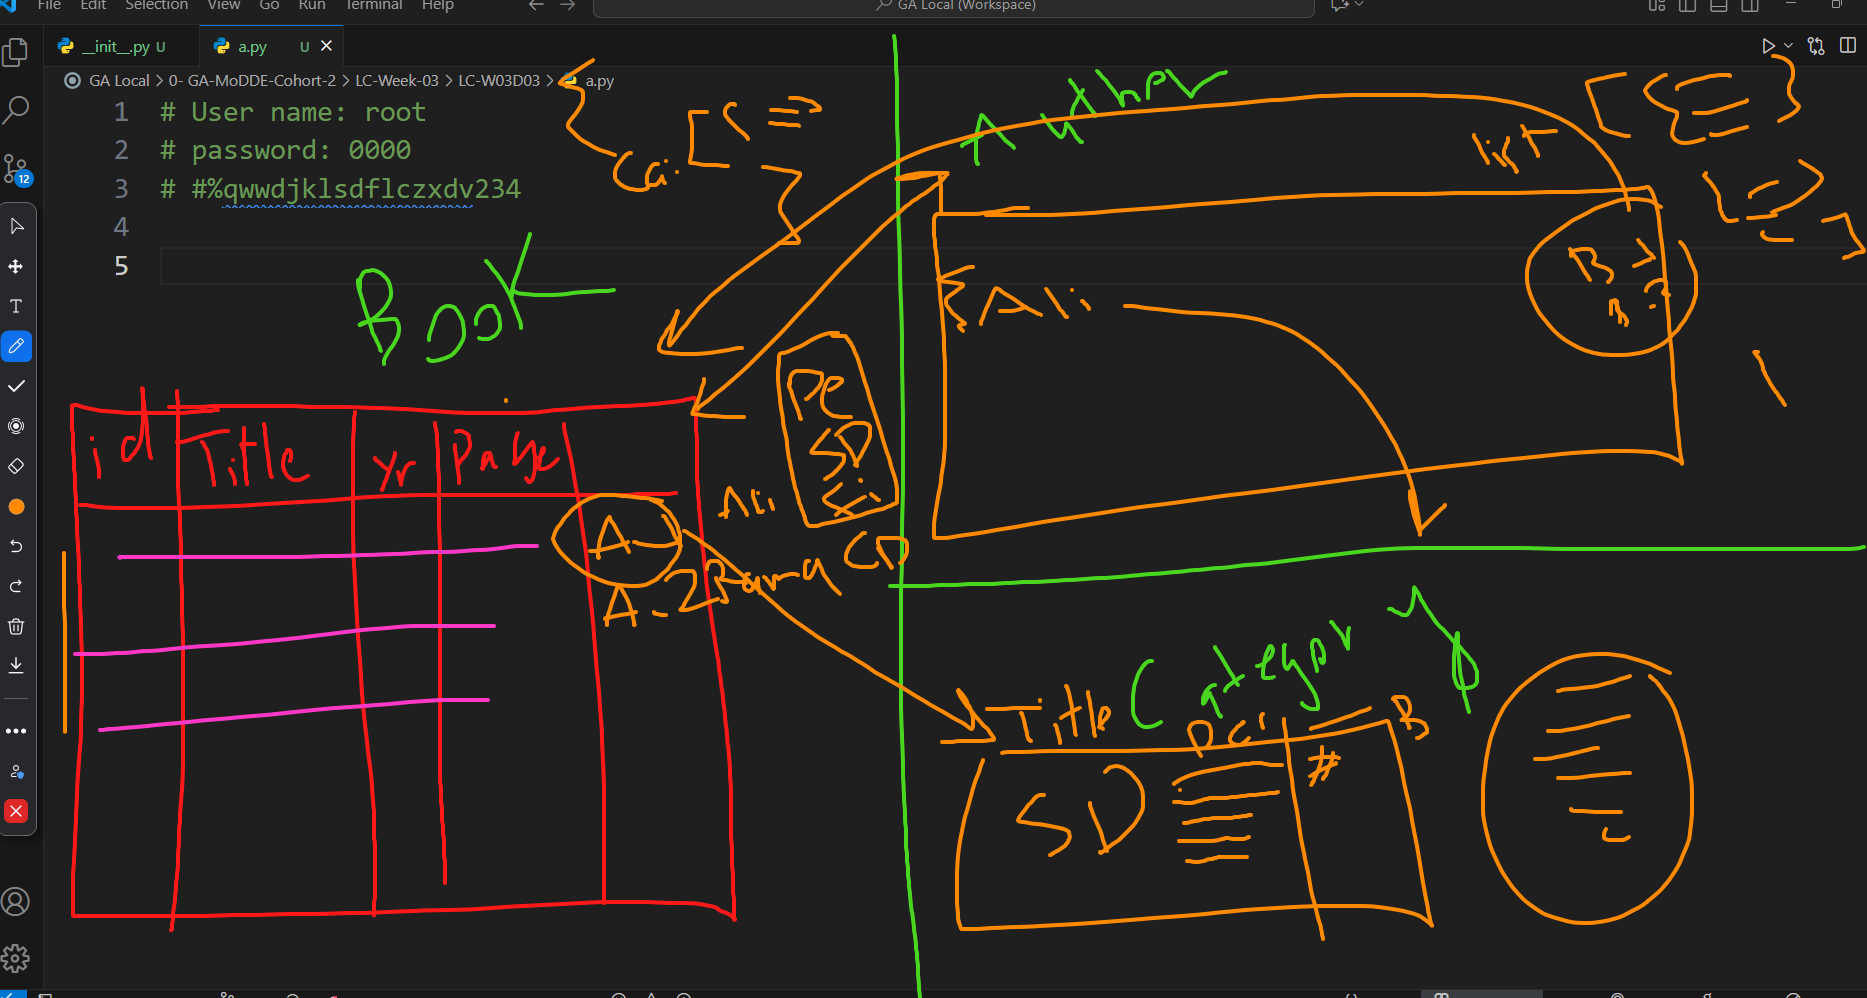 File Edit Selection View Go Run Terminal Help
GA Local (Workspace)
__init__.py U
a.py U
GA Local > 0- GA-MoDDE-Cohort-2 > LC-Week-03 > LC-W03D03 > a.py
1 # User name: root
2 # password: 0000
3 # #%qwwdjklsdflczxdv234
4
5
12
T
Author
list
Book
Ali
id Title Yr Page
SD
Ali
A
A-2
Category
Title
B
SD
#